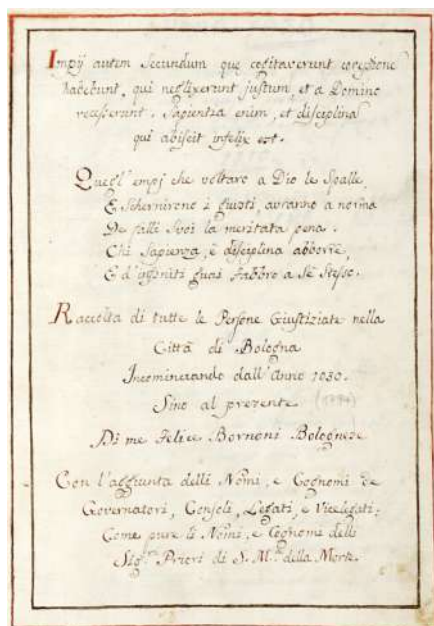 Impij autem secundum que cogitaverunt coreptione
habebunt, qui neglixerunt justum, et a Domino
recesserunt. Sapientia enim, et disciplina
qui abiicit infelix est.
Quegl'empj che voltaro a Dio le Spalle,
E Schernirono i giusti, avranno a norma
De falli Suoi la meritata pena.
Chi Sapienza, e disciplina abborre,
E d'infiniti guai Fabbro a Se Stesso.
Raccolta di tutte le Persone Giustiziate nella
Città di Bologna
Incominciando dall'Anno 1030.
Sino al presente
Di me Felice Bornoni Bolognese
Con l'aggiunta delli Nomi, e Cognomi de
Governatori, Consoli, Legati, e Vicelegati;
Come pure li Nomi, e Cognomi delli
Sig.ri Priori di S. M.a della Morte.